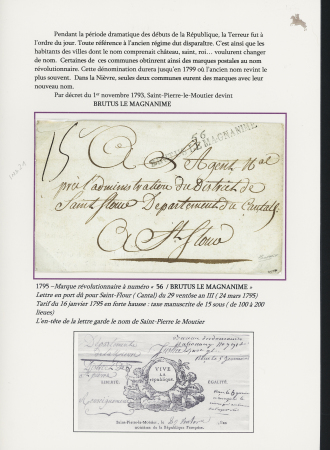 Pendant la période dramatique des débuts de la République, la Terreur fut à
l'ordre du jour. Toute référence à l'ancien régime dut disparaître. C'est ainsi que les
habitants des villes dont le nom comprenait château, saint, roi… voulurent changer
de nom. Certaines de ces communes obtinrent ainsi des marques postales au nom
révolutionnaire. Cette dénomination durera jusqu'en 1799 où l'ancien nom revint le
plus souvent. Dans la Nièvre, seules deux communes eurent des marques avec leur
nouveau nom.
Par décret du 1er novembre 1793, Saint-Pierre-le-Moutier devint
BRUTUS LE MAGNANIME
56
BRUTUS LE MAGNANIME
15
A L'Agent Nal
près l'administration du District de
Saint flour Departement du Cantal
A St flour
1795 – Marque révolutionnaire à numéro « 56 / BRUTUS LE MAGNANIME »
Lettre en port dû pour Saint-Flour ( Cantal) du 29 ventôse an III ( 24 mars 1795)
Tarif du 16 janvier 1795 en forte hausse : taxe manuscrite de 15 sous ( de 100 à 200
lieues)
L'en-tête de la lettre garde le nom de Saint-Pierre le Moutier
VIVE
LA
République.
LIBERTÉ,
ÉGALITÉ,
Saint-Pierre-le-Moutier, le 29 Ventose
troisieme de la République Française.